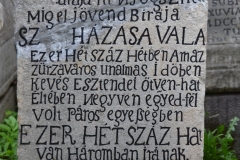 Migel jövend Birája
SZ HÁZASA VALA
EZER HÉT SZÁZ HÉTBEN AMÁZ
ZÚRZÁVAROS UNALMAS IDŐBEN
KEVÉS ESZTENDEI ÖTVEN-HAT
ELTÉBEN NEGYVEN EGYED-FÉL
VOLT PÁROS EGYESSÉGBEN
EZER HÉT SZÁZ HA
VAN HÁROMBAN IRÁNAK